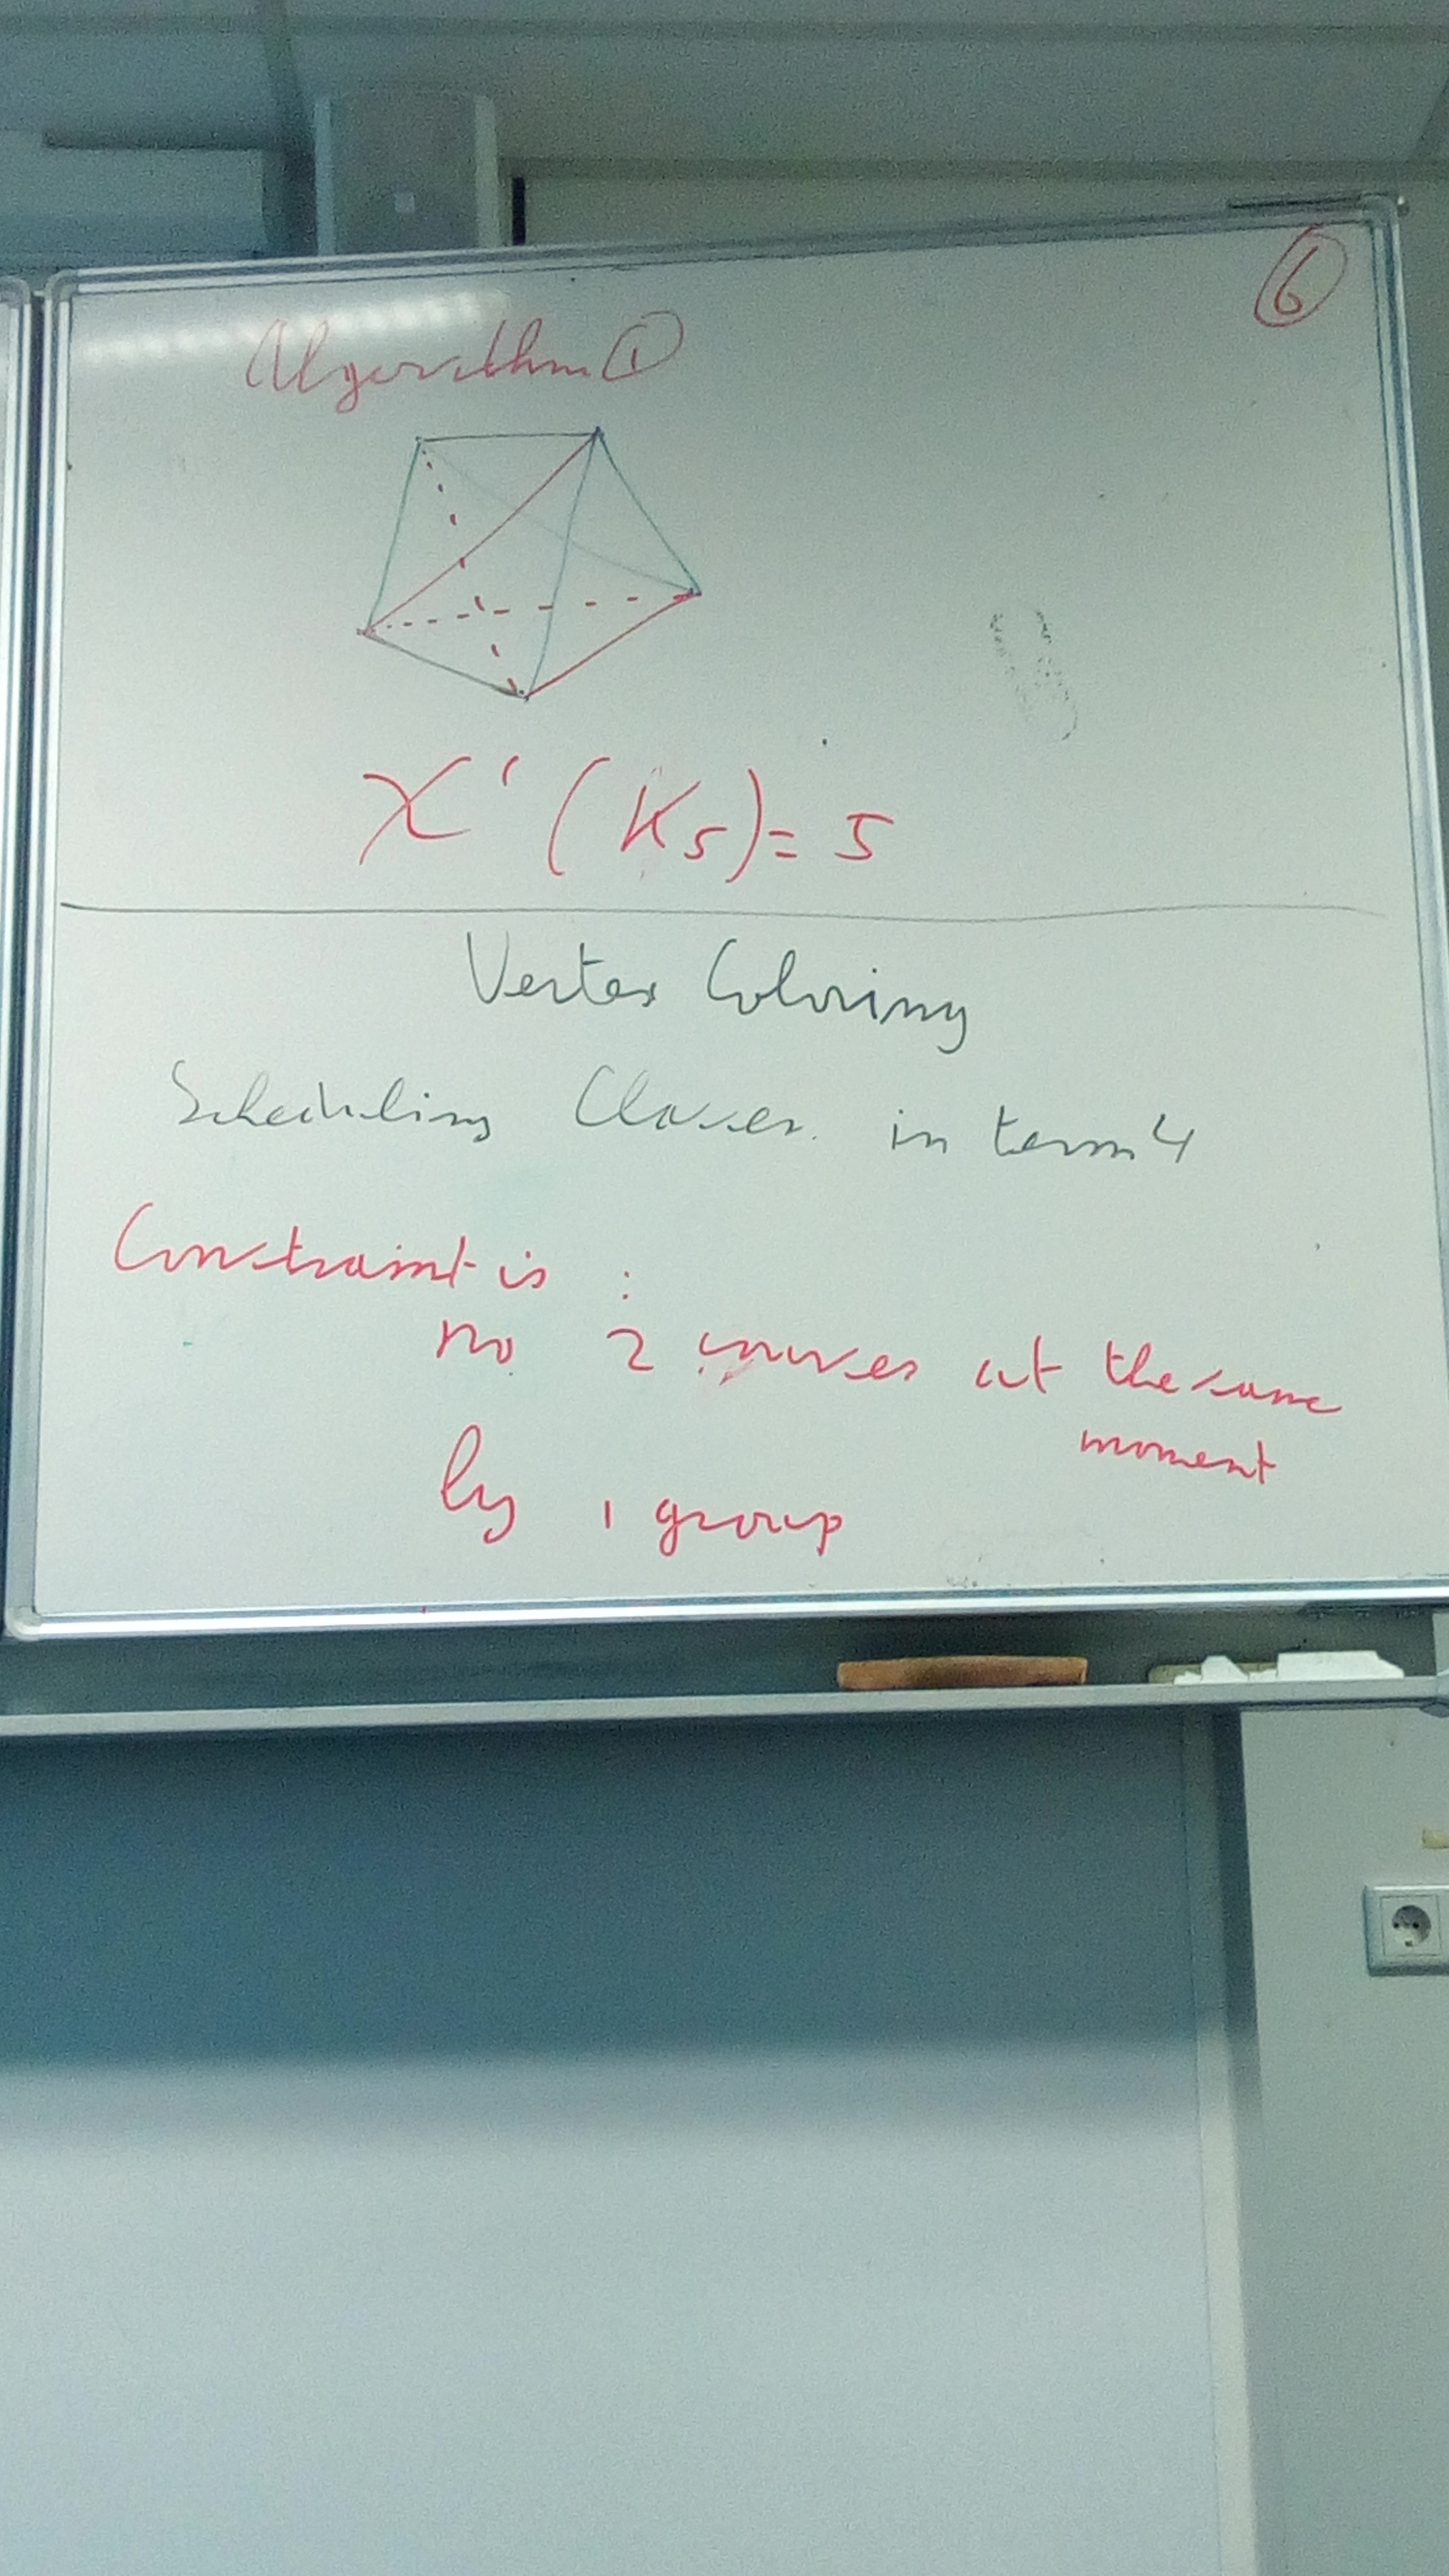 6
Algorithm 1
χ'(K5) = 5
Vertex Coloring
Scheduling Classes in term 4
Constraint is :
no 2 courses at the same
moment
by 1 group